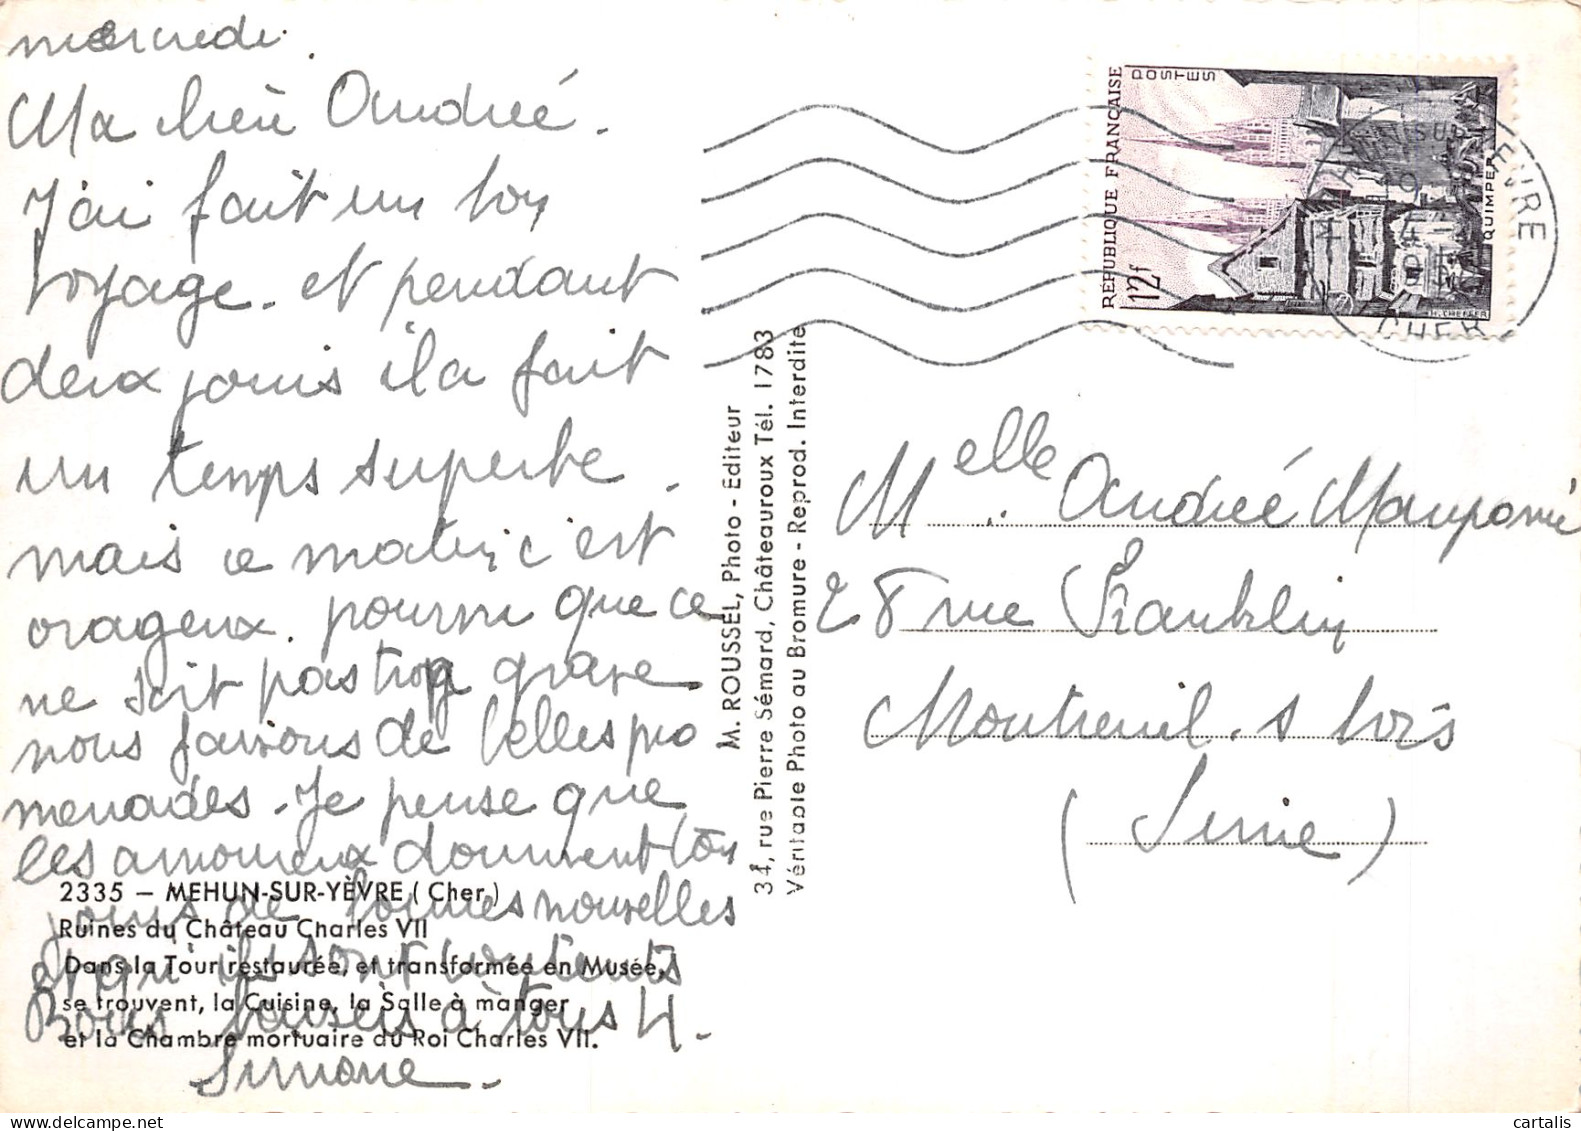 mercredi.
Ma chère Andrée.
J'ai fait un bon
voyage. et pendant
deux jours il a fait
un temps superbe.
mais ce matin c'est
orageux. pourvu que ce
ne soit pas trop grave
nous faisons de belles pro
menades. Je pense que
les amoureux donnent tou
jours de bonnes nouvelles
et qu'ils sont contents
Bons baisers à tous 4.
Simone.
2335 – MEHUN-SUR-YÈVRE (Cher)
Ruines du Château Charles VII
Dans la Tour restaurée, et transformée en Musée,
se trouvent, la Cuisine, la Salle à manger
et la Chambre mortuaire du Roi Charles VII.
M. ROUSSEL, Photo - Editeur
34, rue Pierre Sémard, Châteauroux Tél. 1783
Véritable Photo au Bromure - Reprod. Interdite
RÉPUBLIQUE FRANÇAISE
POSTES
12f
QUIMPER
H. CHEFFER
CHER
Melle Andrée
28 rue Franklin
Montreuil. s bois
(Seine)
cartalis